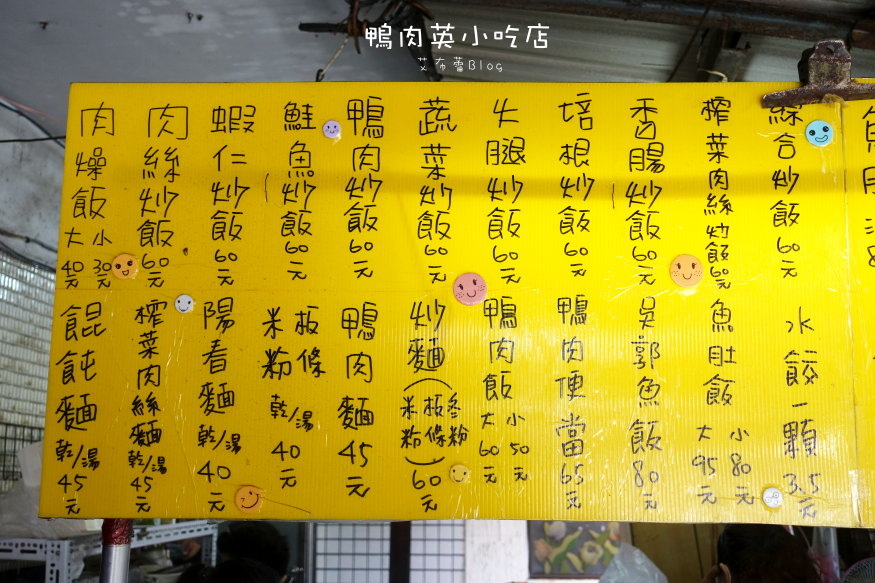 鴨肉英小吃店
艾布蕾Blog
肉燥飯 大40元 小30元
肉絲炒飯60元
蝦仁炒飯60元
鮭魚炒飯60元
鴨肉炒飯60元
蔬菜炒飯60元
火腿炒飯60元
培根炒飯60元
香腸炒飯60元
榨菜肉絲炒飯60元
綜合炒飯60元
餛飩麵 乾/湯 45元
榨菜肉絲麵 乾/湯 45元
陽春麵 乾/湯 40元
米粉 板條 乾/湯 40元
鴨肉麵45元
炒麵(米粉 板條 冬粉)60元
鴨肉飯 大60元 小50元
鴨肉便當65元
吳郭魚飯80元
魚肚飯 大95元 小80元
水餃一顆3.5元
魚